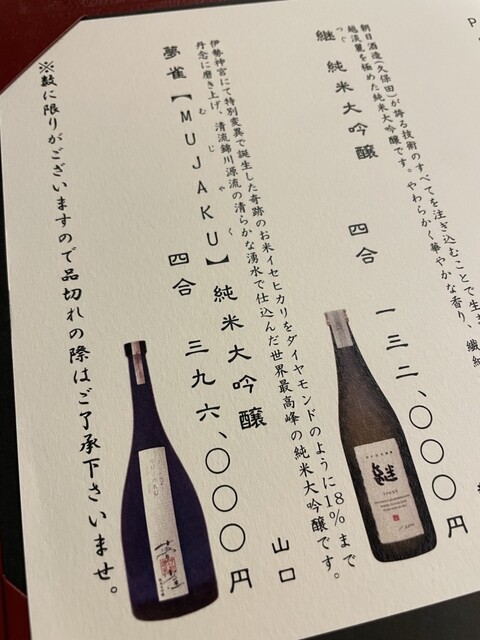 朝日酒造(久保田)が誇る技術のすべてを注ぎ込むことで生ま
越淡麗を極めた純米大吟醸です。やわらかく華やかな香り、繊細
つぐ
継 純米大吟醸 四合 一三二、〇〇〇円
継
伊勢神宮にて特別変異で誕生した奇跡のお米イセヒカリをダイヤモンドのように18%まで
丹念に磨き上げ、清流錦川源流の清らかな湧水で仕込んだ世界最高峰の純米大吟醸です。
むじゃく
夢雀【MUJAKU】純米大吟醸 山口
四合 三九六、〇〇〇円
※数に限りがございますので品切れの際はご了承下さいませ。